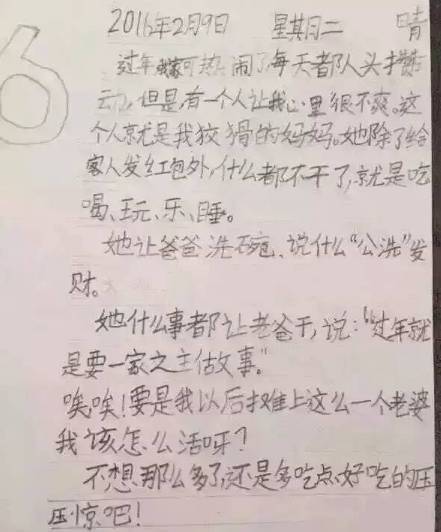 6
2016年2月9日 星其月二 晴
过年我家可热闹了,每天都人头攒
动,但是,有一个人让我心里很不爽。这
个人就是我狡猾的妈妈。她除了给
客人发红包外,什么都不干了,就是吃
喝、玩、乐、睡。
她让爸爸洗碗、说什么“公洗”发
财。
她什么事都让老爸干,说:“过年就
是要一家之主做事。”
唉,唉!要是我以后摊上这么一个老婆
我该怎么活呀?
不想那么多了,还是多吃点好吃的压
压惊吧!